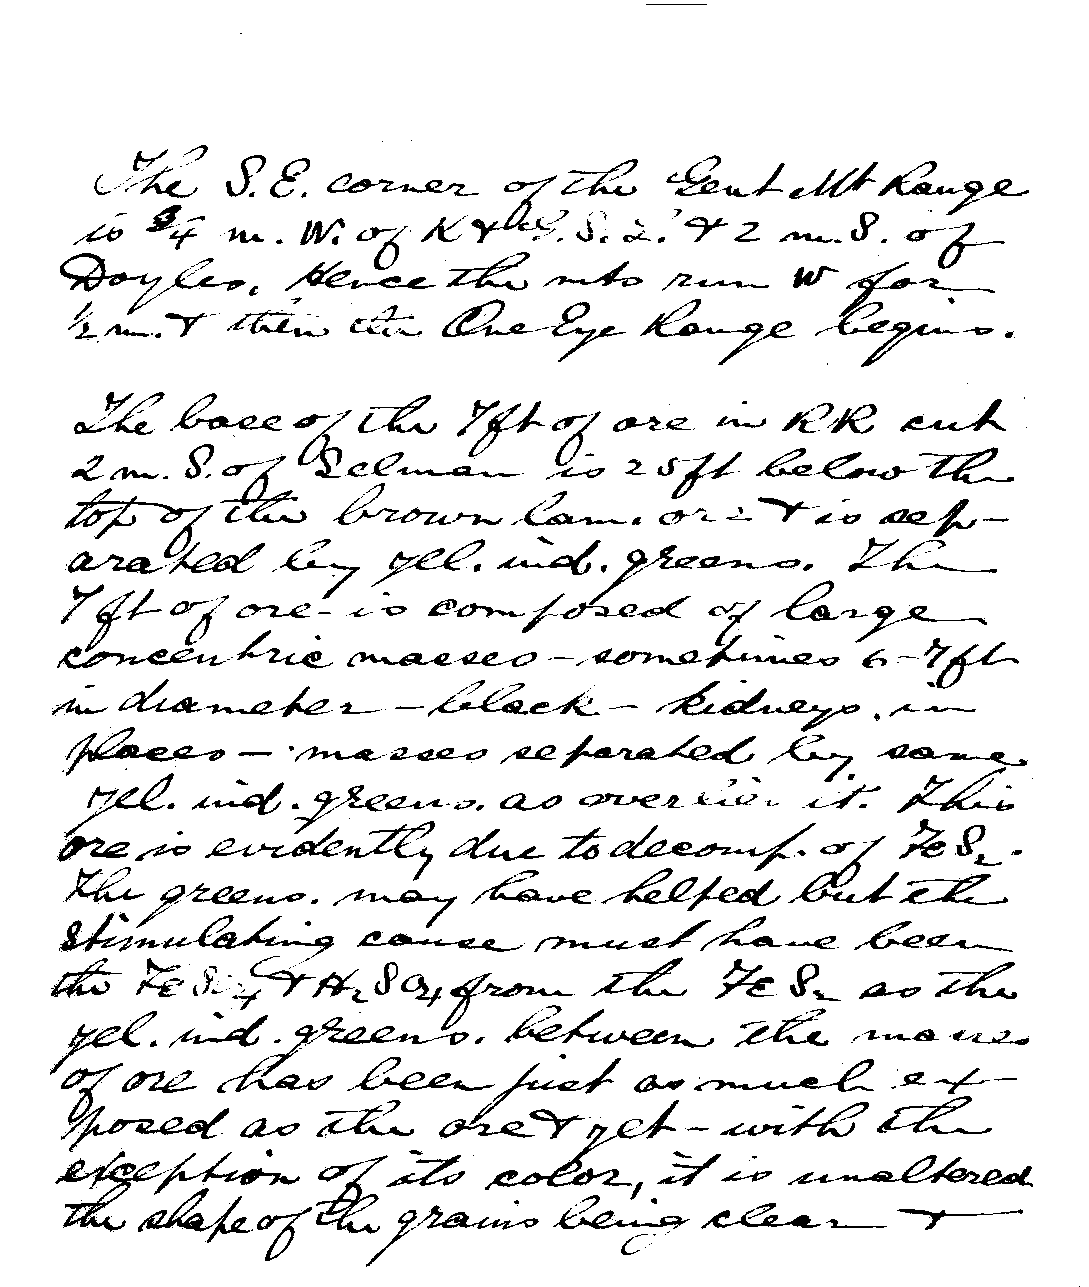 The S.E. corner of the Gent Mt Range
is 3/4 m. W. of K & G. S. L. & 2 m. S. of
Doyles, Hence the mts run W for
1/2 m. & then the One Eye Range begins.
The base of the 7ft of ore in RR cut
2 m. S. of Selman is 25ft below the
top of the brown lam. ore & is sep-
arated by yel. ind. greens. The
7ft of ore is composed of large
concentric masses - sometimes 6-7ft
in diameter - black - kidneys in
places - masses separated by same
yel. ind. greens. as overlies it. This
ore is evidently due to decomp. of FeS2.
The greens. may have helped but the
stimulating cause must have been
the FeSO4 & H2SO4 from the FeS2 as the
yel. ind. greens. between the masses
of ore has been just as much ex-
posed as the ore & yet - with the
exception of its color, it is unaltered
the shape of the grains being clear &